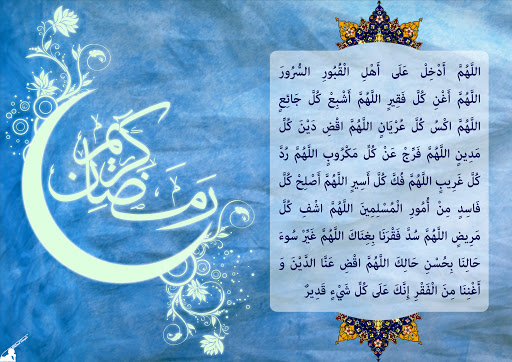 رمضان كريم
اللَّهُمَّ أَدْخِلْ عَلَى أَهْلِ الْقُبُورِ السُّرُورَ
اللَّهُمَّ أَغْنِ كُلَّ فَقِيرٍ اللَّهُمَّ أَشْبِعْ كُلَّ جَائِعٍ
اللَّهُمَّ اكْسُ كُلَّ عُرْيَانٍ اللَّهُمَّ اقْضِ دَيْنَ كُلِّ
مَدِينٍ اللَّهُمَّ فَرِّجْ عَنْ كُلِّ مَكْرُوبٍ اللَّهُمَّ رُدَّ
كُلَّ غَرِيبٍ اللَّهُمَّ فُكَّ كُلَّ أَسِيرٍ اللَّهُمَّ أَصْلِحْ كُلَّ
فَاسِدٍ مِنْ أُمُورِ الْمُسْلِمِينَ اللَّهُمَّ اشْفِ كُلَّ
مَرِيضٍ اللَّهُمَّ سُدَّ فَقْرَنَا بِغِنَاكَ اللَّهُمَّ غَيِّرْ سُوءَ
حَالِنَا بِحُسْنِ حَالِكَ اللَّهُمَّ اقْضِ عَنَّا الدَّيْنَ وَ
أَغْنِنَا مِنَ الْفَقْرِ إِنَّكَ عَلَى كُلِّ شَيْءٍ قَدِيرٌ